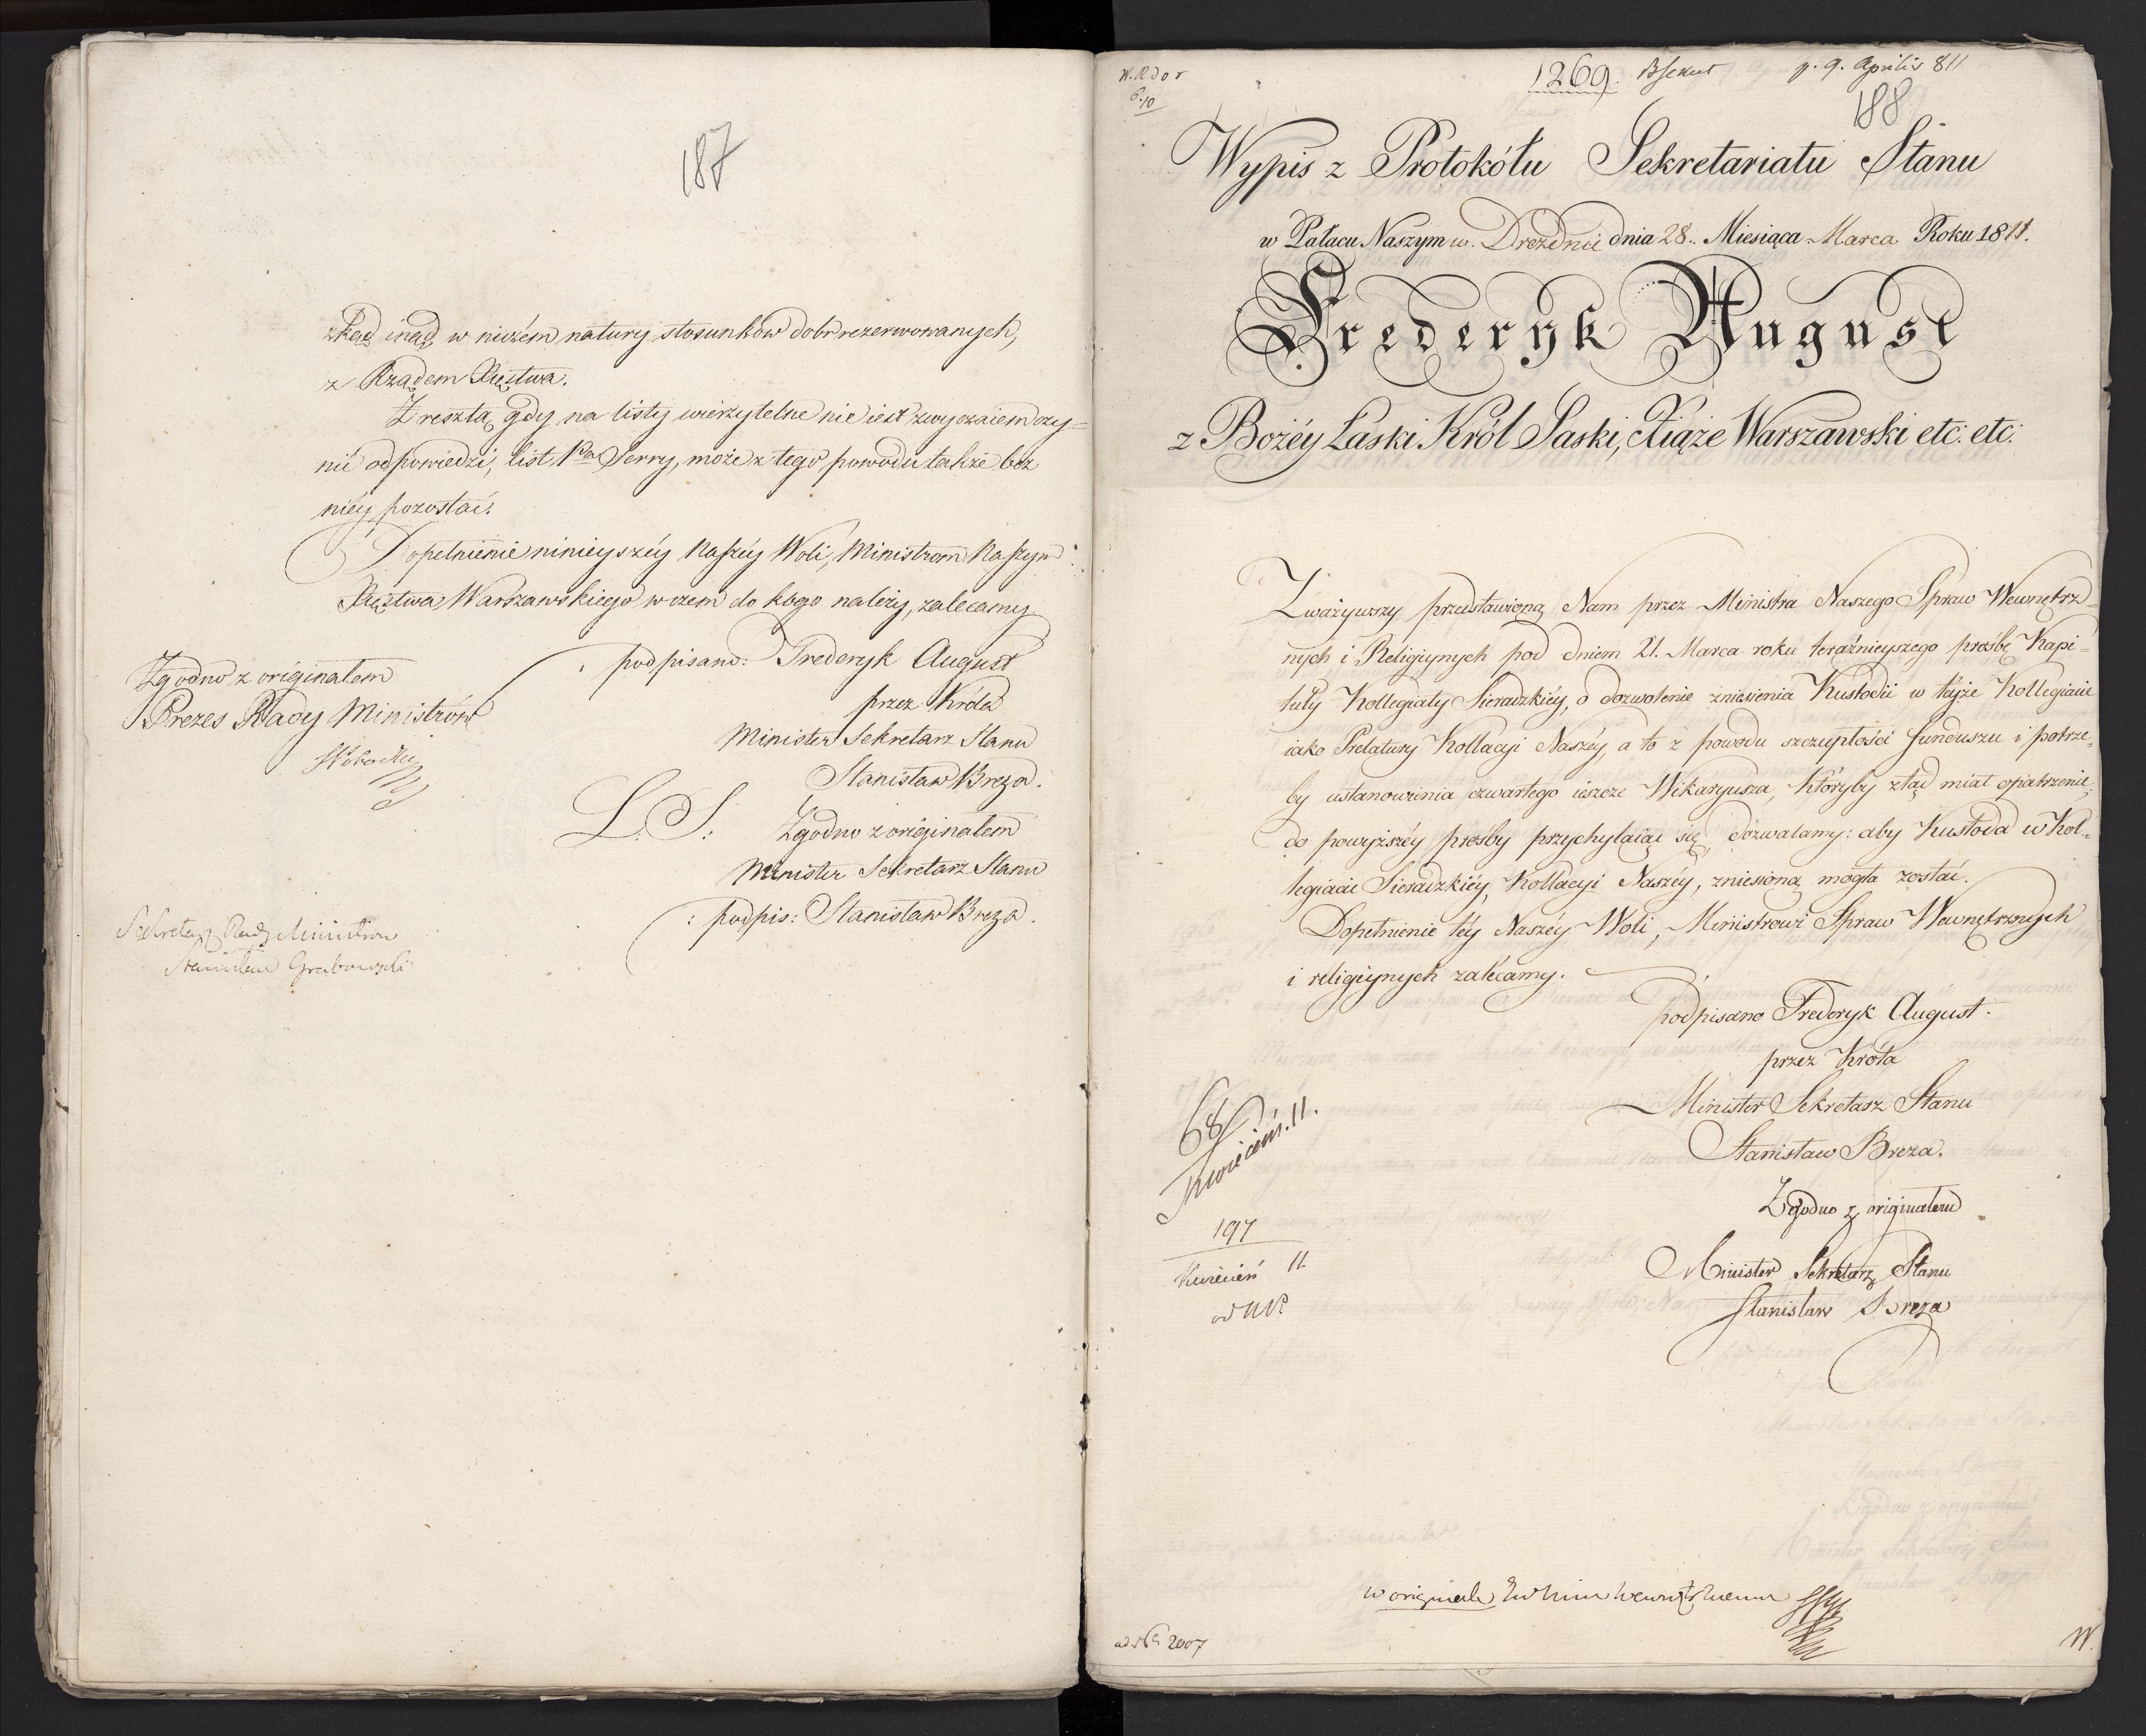 187
zkąd inąd w niczém natury stosunków dobr rezerwowanych,
z Rządem Xięstwa.
Z resztą, gdy na listy wierzytelne nie iest zwyczaiem czy=
nić odpowiedzi, list Pa Serry, może z tego powodu także bez
niéy pozostać.
Dopełnienie ninieyszéy Naszéy Woli, Ministrom Naszym
Xięstwa Warszawskiego w czem do kogo należy, zalecamy.
: podpisano: Frederyk August
przez Króla
Minister Sekretarz Stanu
Stanisław Breza.
L. S. Zgodno z originałem
Minister Sekretarz Stanu
: podpis: Stanisław Breza.
Zgodno z originałem
Prezes Rady Ministrów
Sekretarz Rady Ministrow
Stanisław Grabowski
1269. p. 9. Aprilis 811
188
Wypis z Protokółu Sekretariatu Stanu
w Pałacu Naszym w Dreznie dnia 28. Miesiąca Marca Roku 1811.
Frederyk August
z Bożéy Łaski Król Saski, Xiąże Warszawski etc: etc:
Zważywszy przedstawioną Nam przez Ministra Naszego Spraw Wewnętrz=
nych i Religiynych pod dniem 21. Marca roku teraźnieyszego prośbę Kapi=
tuły Kollegiaty Sieradzkiéy, o dozwolenie zniesienia Kustodii w téyże Kollegiacie
iako Prelatury Kollacyi Naszéy, a to z powodu szczupłości funduszu i potrze=
by ustanowienia czwartego ieszcze Wikaryusza, któryby ztąd miał opatrzenie;
do powyższéy prośby przychylaiąc się, dozwalamy: aby Kustoda w Kol=
legiacie Sieradzkiéy, Kollacyi Naszéy, zniesioną mogła zostać.
Dopełnienie téy Naszéy Woli, Ministrowi Spraw Wewnętrznych
i religiynych zalécamy.
podpisano Frederyk August.
przez Króla
Minister Sekretarz Stanu
Stanisław Breza.
Zgodno z originałem
Minister Sekretarz Stanu
Stanisław Breza
68
Kwiecień. 11.
197
Kwiecień 11
w originale
2007
W.